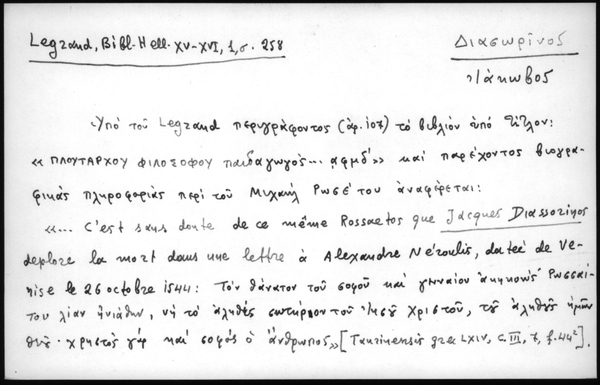 Legrand, Bibl. Hell. XV-XVI, 1, σ. 258
Διασωρῖνος
Ἰάκωβος
Ὑπό τοῦ Legrand περιγράφοντος (ἀρ. 107) τό βιβλίον ὑπό τίτλον:
« ΠΛΟΥΤΑΡΧΟΥ ΦΙΛΟΣΟΦΟΥ παιδαγωγός... αφμδ´» καί παρέχοντος βιογρα-
φικάς πληροφορίας περί τοῦ Μιχαήλ Ρωσέτου ἀναφέρεται:
«... C'est sans doute de ce même Rossaetos que Jacques Diassorinos
deplore la mort dans une lettre à Alexandre Néroulis, datée de Ve-
nise le 26 octobre 1544: Τόν θάνατον τοῦ σοφοῦ καί γενναίου ἀκηκοώς Ρωσσαί-
του λίαν ἠνιάθην, νή τό ἀληθές σωτήριον τοῦ Ἰησοῦ Χριστοῦ, τοῦ ἀληθοῦς ἡμῶν
θεοῦ· χρηστός γάρ καί σοφός ὁ ἄνθρωπος» [Taurinensis grec LXIV, c. III, 7, f. 44²].